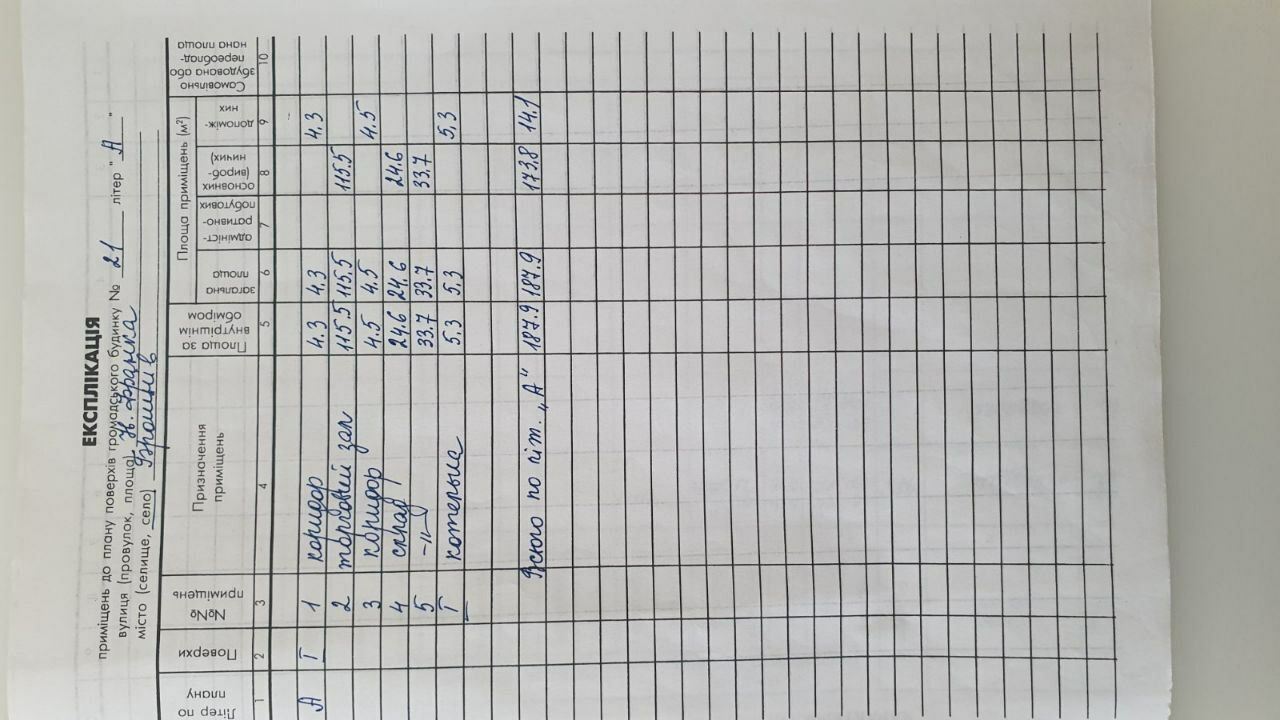 ЕКСПЛІКАЦІЯ
приміщень до плану поверхів громадського будинку № 21 літер "А"
вулиця (провулок, площа) Ів. Франка
місто (селище, село)
Літер по плану
Поверхи
№№ приміщень
Призначення приміщень
Площа за внутрішнім обміром
Площа приміщень (м²)
загальна площа
адміністративно-побутових
основних (виробничих)
допоміжних
Самовільно збудована або переобладнана площа
1 2 3 4 5 6 7 8 9 10
А І 1 коридор 4.3 4.3 4.3
2 торговий зал 115.5 115.5 115.5
3 коридор 4.5 4.5 4.5
4 склад 24.6 24.6 24.6
5 -"- 33.7 33.7 33.7
І котельня 5.3 5.3 5,3
Всього по літ. „А" 187.9 187.9 173.8 14.1